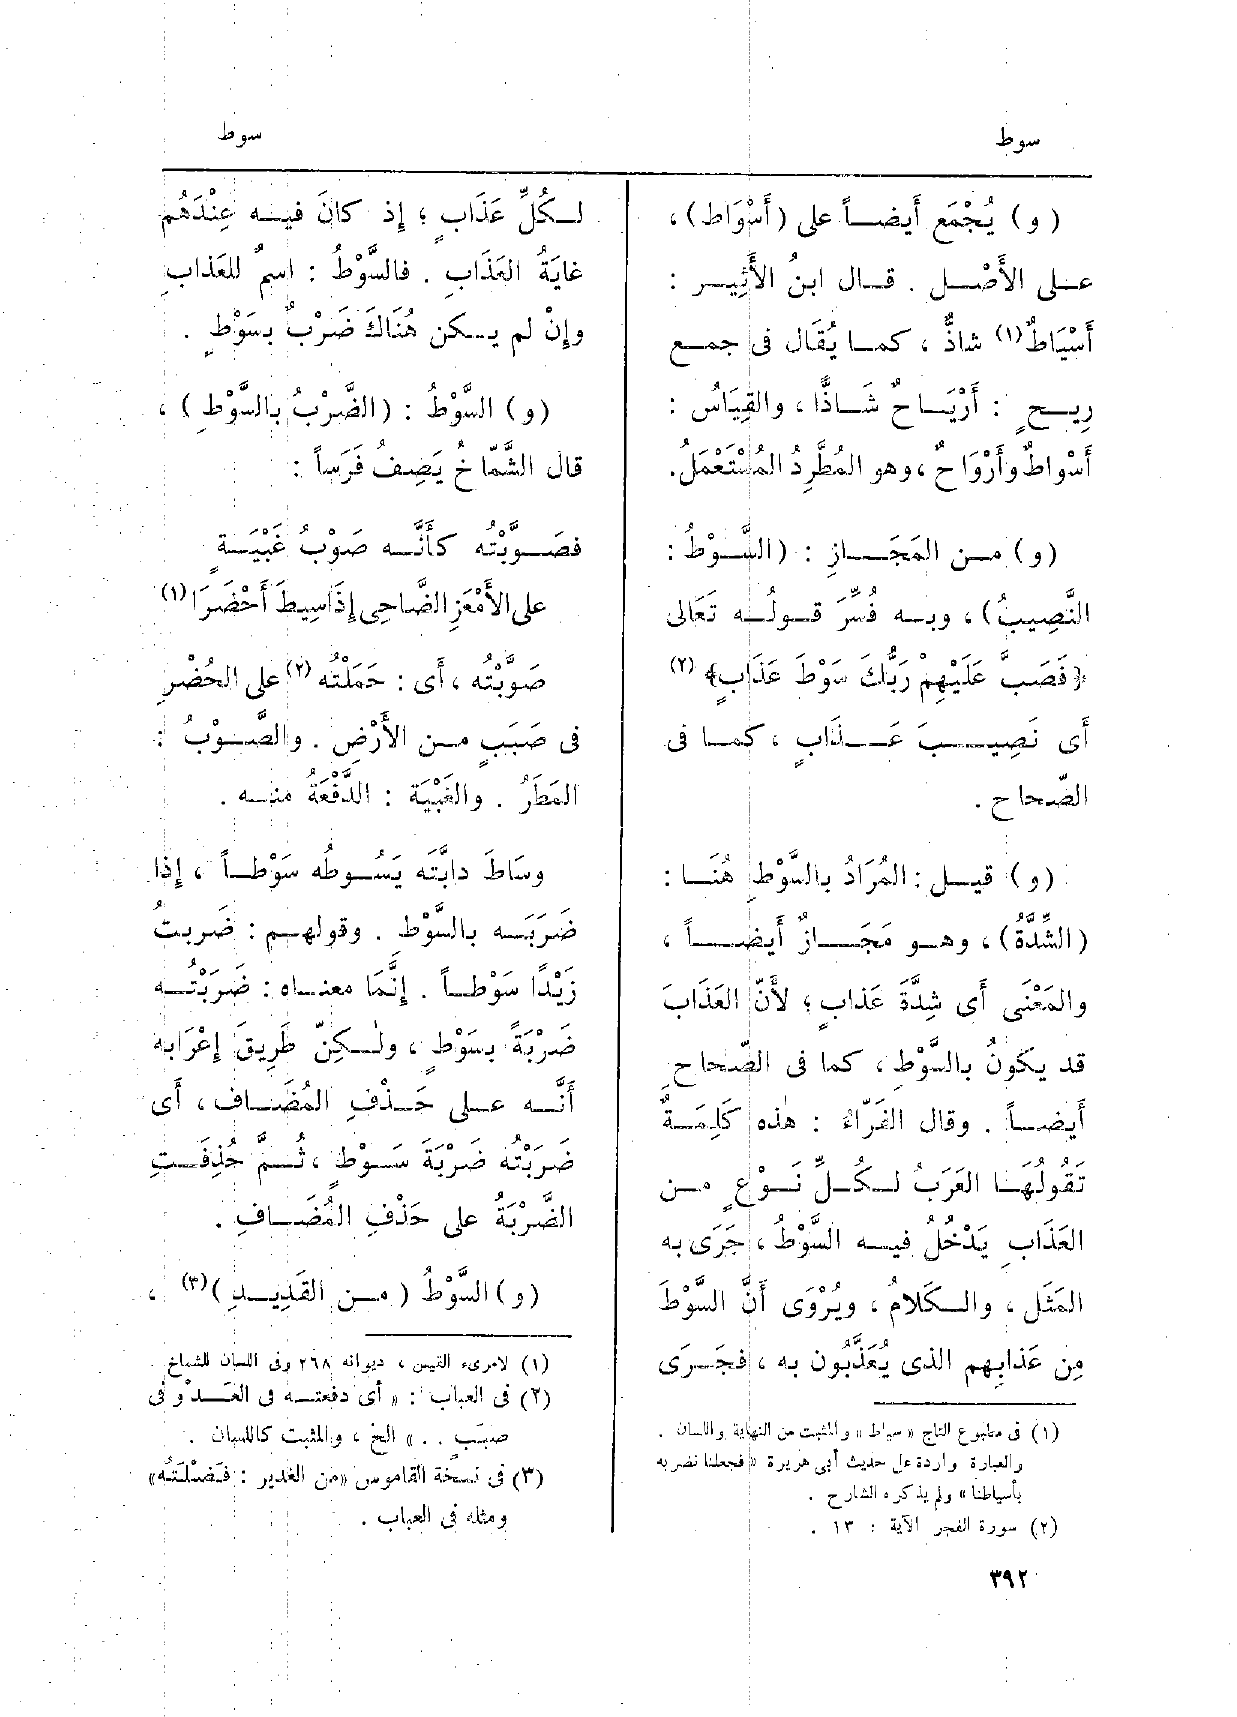 سوط
سوط
(و) يُجْمَع أَيضاً على (أَسْوَاط) ،
على الأَصْل . قال ابنُ الأَثِير :
أَسْيَاطٌ (١) شاذٌّ ، كما يُقَال فى جمع
رِيحٍ : أَرْيَاحٌ شَاذًّا ، والقِيَاسُ :
أَسْواطٌ وأَرْوَاحٌ ، وهو المُطَّرِدُ المُسْتَعْمَلُ .
(و) من المَجَازِ : (السَّوْطُ :
النَّصِيبُ) ، وبه فُسِّرَ قولُه تَعَالى
﴿فَصَبَّ عَلَيْهِمْ رَبُّكَ سَوْطَ عَذَابٍ﴾ (٢)
أَى نَصِيبَ عَذَابٍ ، كما فى
الصّحاح .
(و) قيل : المُرَادُ بالسَّوْطِ هُنَا :
(الشِّدَّةُ) ، وهو مَجَازٌ أَيضاً ،
والمَعْنَى أَى شِدَّةَ عَذابٍ ؛ لأَنّ العَذَابَ
قد يكونُ بالسَّوْطِ ، كما فى الصّحاحِ
أَيضاً . وقال الفَرّاءُ : هٰذه كَلِمَةٌ
تَقُولُهَا العَرَبُ لكُلِّ نَوْعٍ من
العَذَابِ يَدْخُلُ فيه السَّوْطُ ، جَرَى به
المَثَل ، والكَلامُ ، ويُرْوَى أَنَّ السَّوْطَ
مِن عَذابِهم الذى يُعَذَّبُون به ، فجَرَى
(١) فى مطبوع التاج « سياط » والمثبت من النهاية واللسان .
والعبارة واردة على حديث أبى هريرة « فجعلنا نضربه
بأسياطنا » ولم يذكره الشارح .
(٢) سورة الفجر الآية : ١٣ .
لكُلِّ عَذَابٍ ؛ إِذ كانَ فيه عِنْدَهُم
غايَةُ العَذَابِ . فالسَّوْطُ : اسمٌ للعَذابِ
وإِنْ لم يكن هُنَاكَ ضَرْبٌ بسَوْطٍ .
(و) السَّوْطُ : (الضَّرْبُ بالسَّوْطِ) ،
قال الشَّمّاخُ يَصِفُ فَرَساً :
فصَوَّبْتُه كأَنَّه صَوْبُ غَبْيَةٍ
على الأَمْعَزِ الضّاحِى إِذَا سِيطَ أَحْضَرَا (١)
صَوَّبْتُه ، أَى : حَمَلْتُه (٢) على الحُضْرِ
فى صَبَبٍ من الأَرْضِ . والصَّوْبُ :
المَطَرُ . والغَبْيَة : الدَّفْعَةُ منه .
وسَاطَ دابَّتَه يَسُوطُه سَوْطاً ، إِذا
ضَرَبَه بالسَّوْط . وقولهم : ضَربتُ
زَيْدًا سَوْطاً . إِنَّمَا معناه : ضَرَبْتُه
ضَرْبَةً بسَوْطٍ ، ولٰكِنّ طَرِيقَ إِعْرَابه
أَنَّه على حَذْفِ المُضَاف ، أَى
ضَرَبْتُه ضَرْبَةَ سَوْطٍ ، ثُمَّ حُذِفَتِ
الضَّرْبَةُ على حَذْفِ المُضَافِ .
(و) السَّوْطُ ( من القَدِيدِ ) (٣) ،
(١) لامرىء القيس ، ديوانه ٢٦٨ وفى اللسان للشماخ .
(٢) فى العباب : « أى دفعته فى العَدْو فى
صبَبٍ . . » الخ ، والمثبت كاللسان .
(٣) فى نسخة القاموس «من الغدير : فَضْلَتُه»
ومثله فى العباب .
٣٩٢